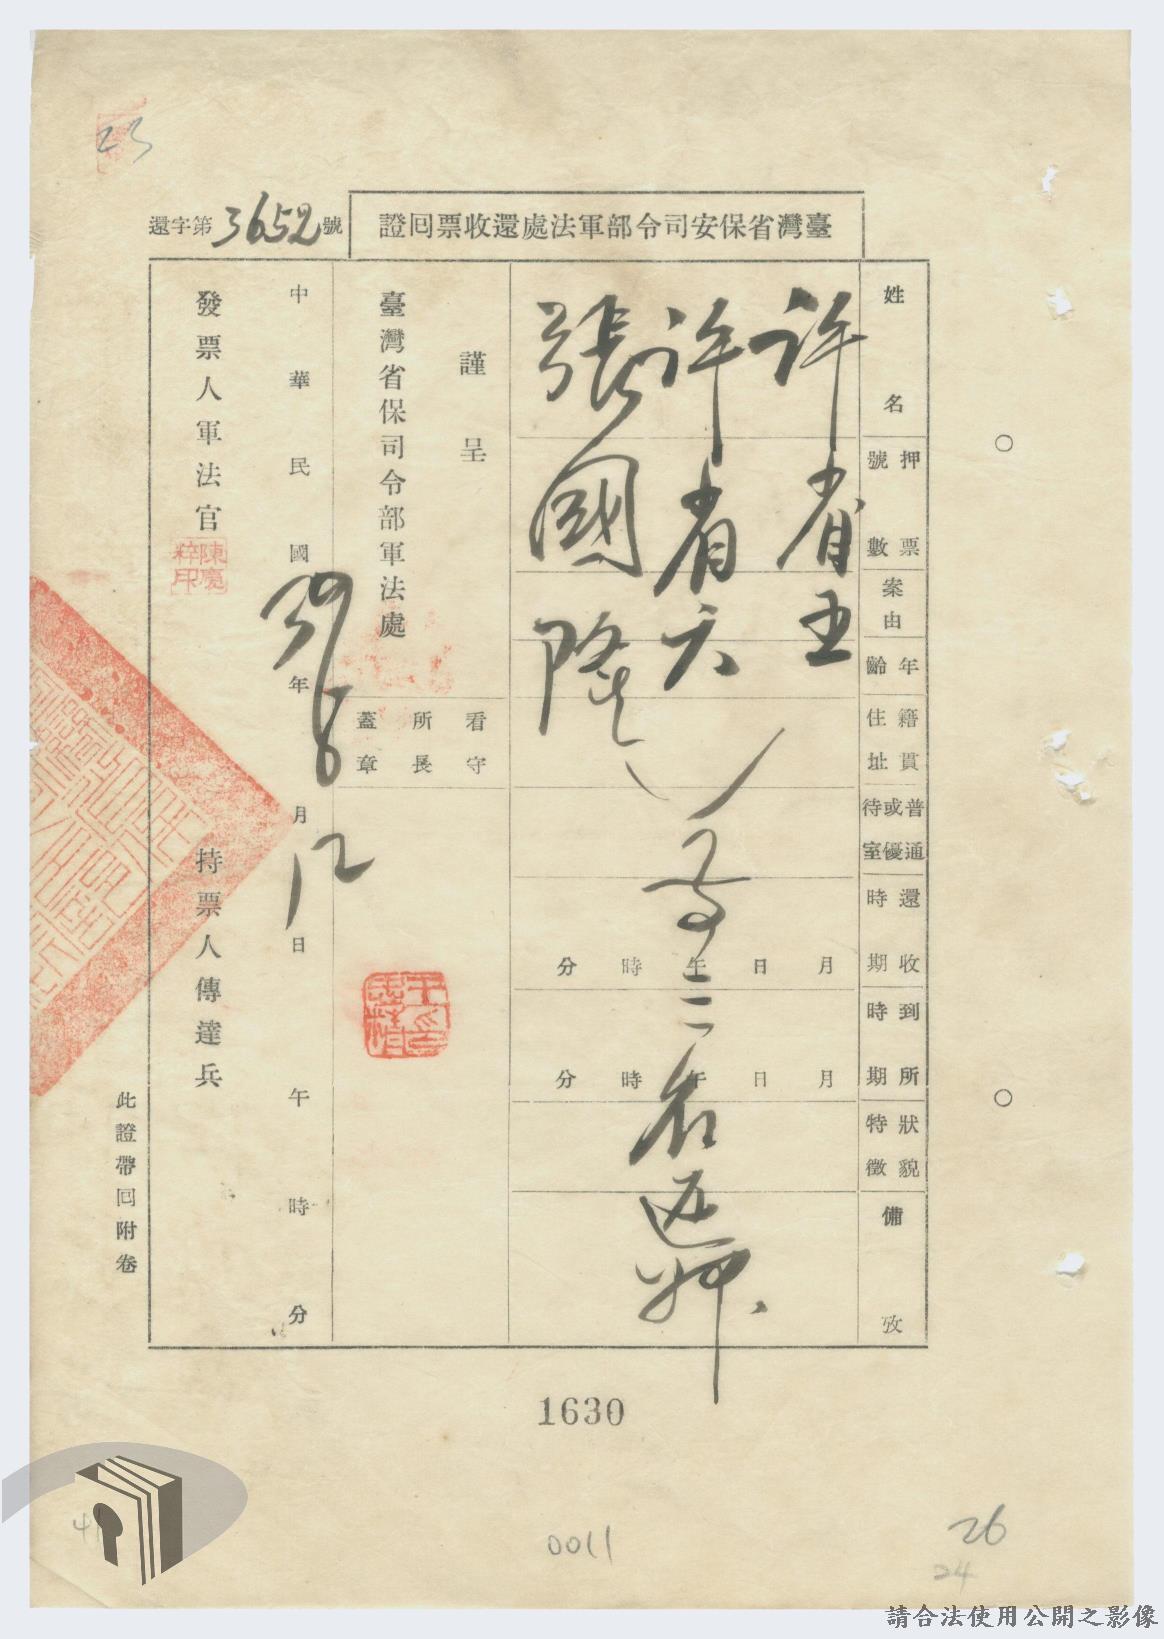 23
臺灣省保安司令部軍法處還收票回證
還字第3652號
姓名
押票號數
案由
年齡
籍貫住址
普通或優待室
還收時期
到所時期
狀貌特徵
備攷
許省五
許省六
張國隆
等三名還押
月日午時分
月日午時分
謹呈
臺灣省保司令部軍法處
看守所長蓋章
中華民國39年6月12日午時分
發票人軍法官
陳慶粹印
持票人傳達兵
此證帶回附卷
1630
0011
26
24
41
請合法使用公開之影像